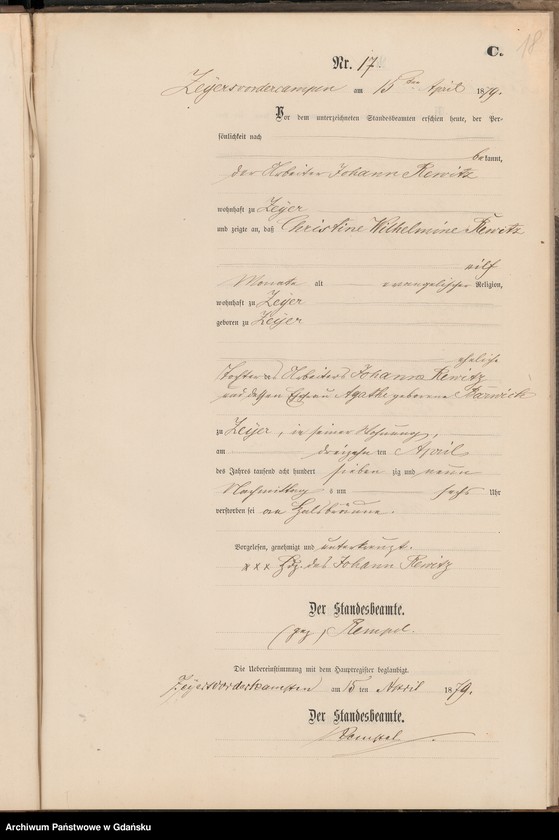 C.
18
Nr. 17.
Zeyersvordercampen am 15ten April 1879.
Vor dem unterzeichneten Standesbeamten erschien heute, der Per-
sönlichkeit nach
bekannt,
der Arbeiter Johann Rewitz
wohnhaft zu Zeyer
und zeigte an, daß Christine Wilhelmine Rewitz
eilf
Monate alt evangelischer Religion,
wohnhaft zu Zeyer
geboren zu Zeyer
eheliche
Tochter des Arbeiters Johann Rewitz
und dessen Ehefrau Agathe geborene Barwick
zu Zeyer, in seiner Wohnung,
am dreizehn ten April
des Jahres tausend acht hundert sieben zig und neun
Nachmittags um sechs Uhr
verstorben sei an Halsbräune.
Vorgelesen, genehmigt und unterkreuzt.
xxx Hdz. des Johann Rewitz
Der Standesbeamte.
(gez) Rempel.
Die Uebereinstimmung mit dem Hauptregister beglaubigt.
Zeyersvorderkampen am 15 ten April 1879.
Der Standesbeamte.
Rempel.
Archiwum Państwowe w Gdańsku